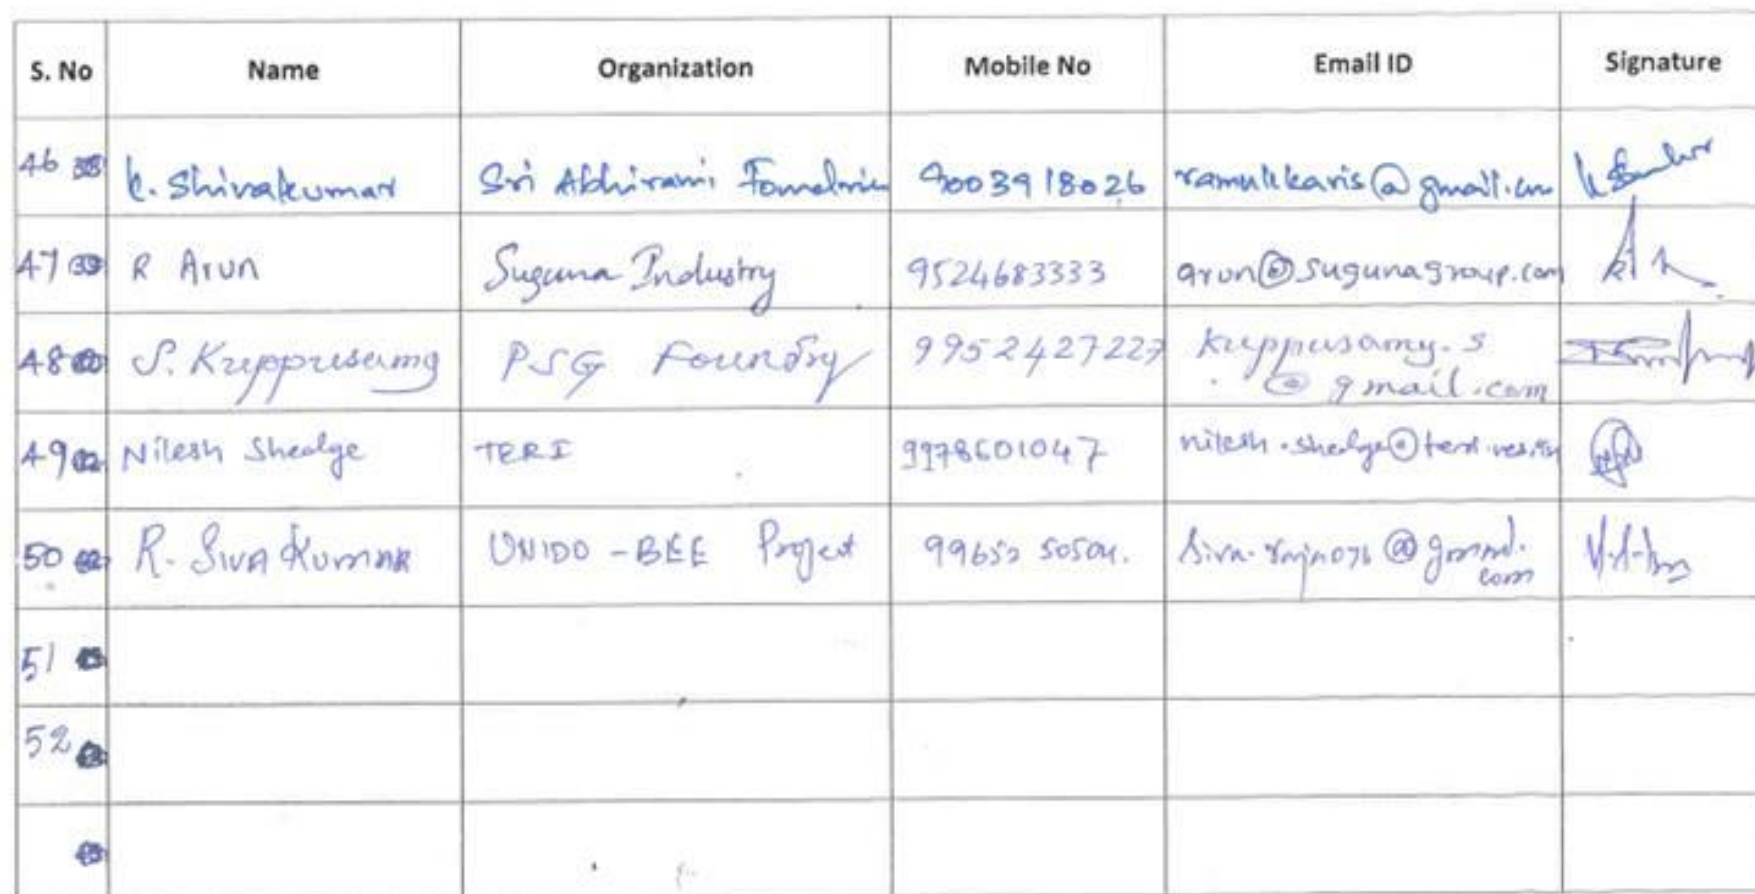 S. No Name Organization Mobile No Email ID Signature
46 K. Shivakumar Sri Abhirami 9003918026 ramukkaris@gmail.com
47 R Arun Suguna Industry 9524683333 arun@sugunagroup.com
48 S. Kuppusamy PSG Foundry 9952427227 kuppusamy.s
@gmail.com
49 Nilesh Shedge TERI 9978601047 nilesh.shedge@teri.res.in
50 R. Siva Kumar UNIDO-BEE Project 99652 50504.
com
51
52